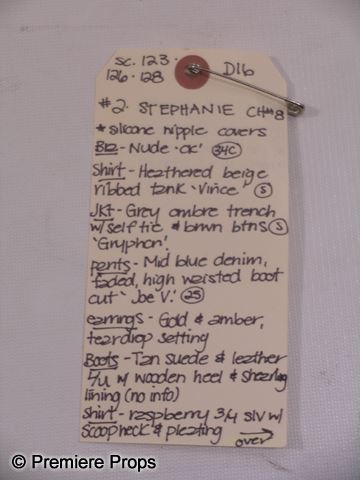 SC. 123 ·
126 · 128 D16
#2 · STEPHANIE CH#8
* silicone nipple covers
Bra - Nude · CK' 34C
Shirt - Heathered beige
ribbed tank 'Vince' S
JKT - Grey ombre trench
w/ self tie & brwn btns S
'Gryphon'.
pants - Mid blue denim,
faded, high waisted boot
cut 'Joe V.' 25
earrings - Gold & amber,
teardrop setting
Boots - Tan suede & leather
L/U w wooden heel & shearling
lining (no info)
shirt - raspberry 3/4 slv w/
scoopneck & pleating
over →
© Premiere Props